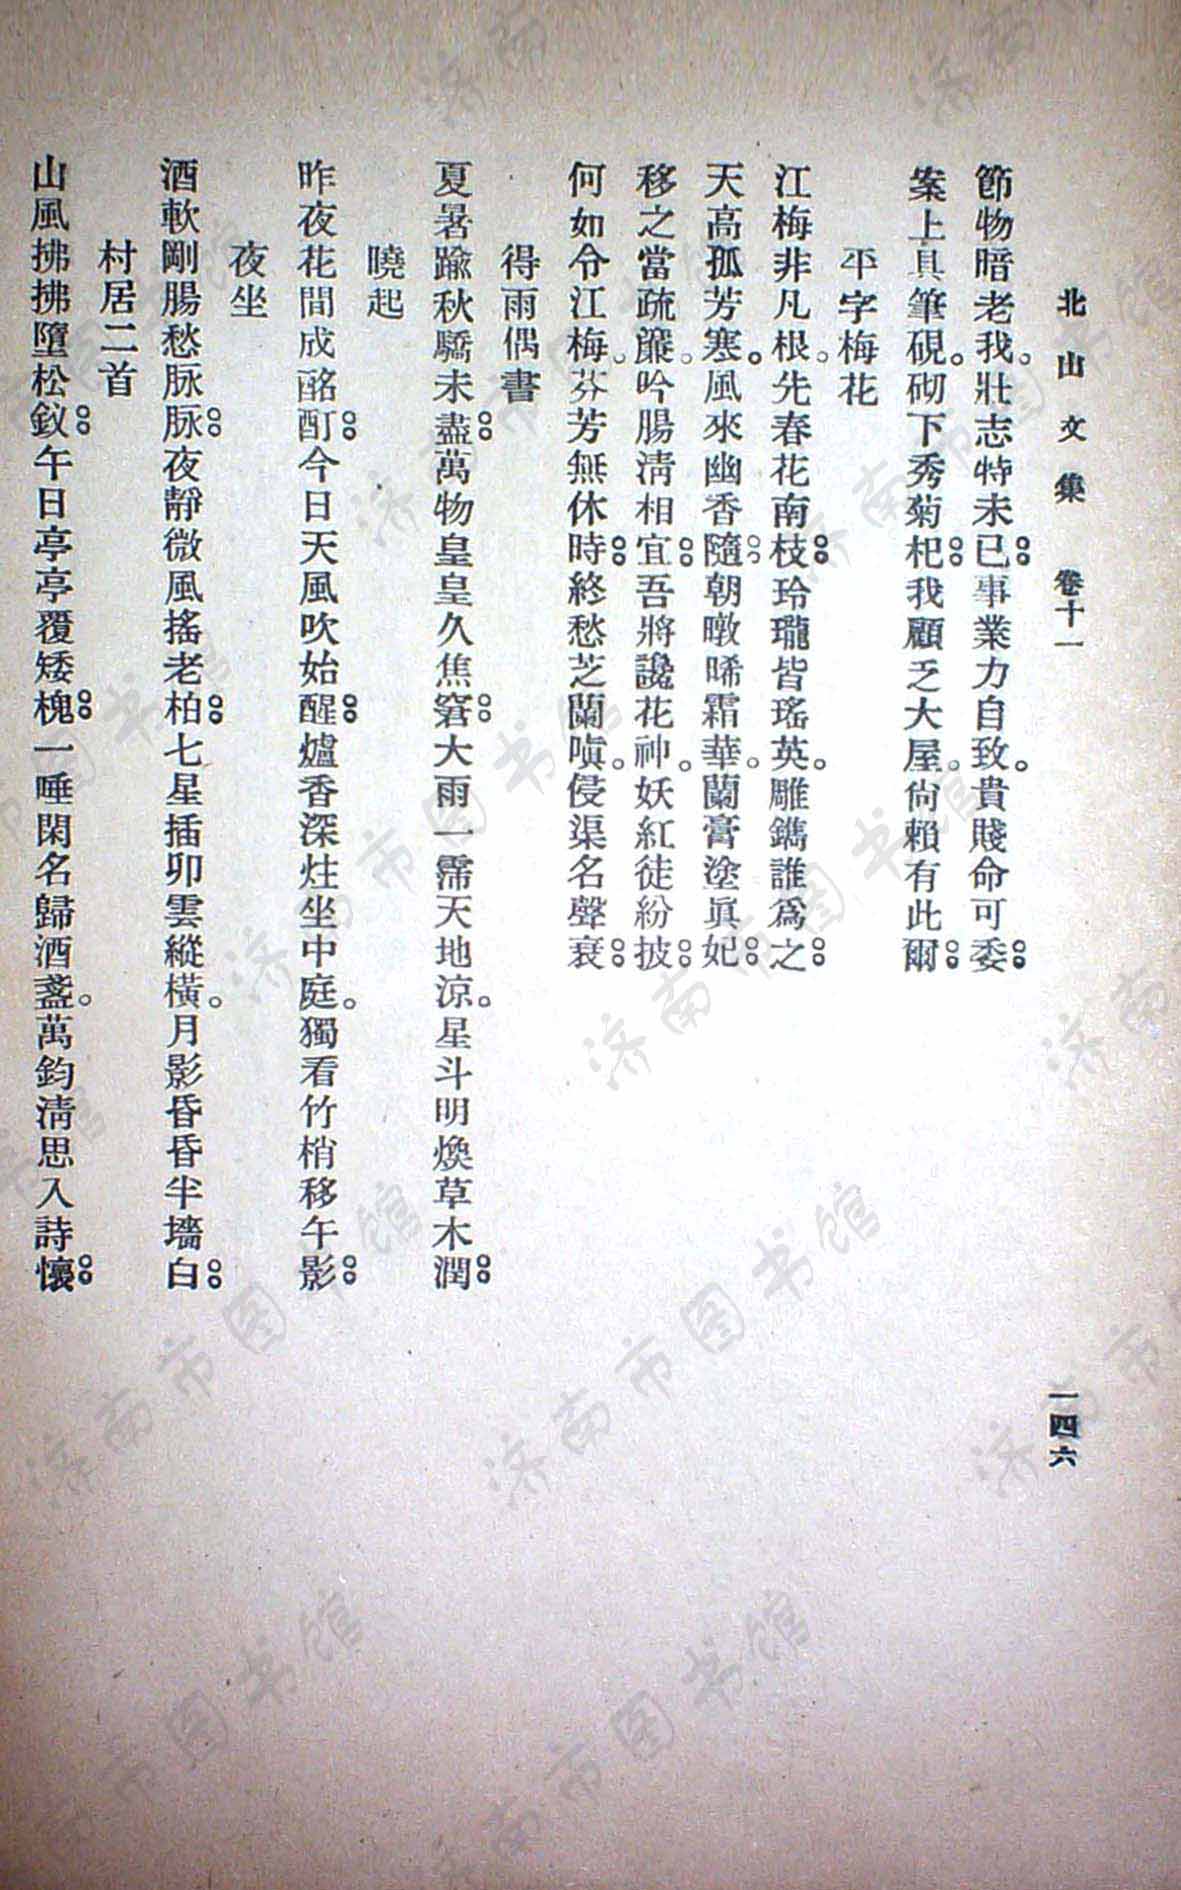 北山文集 卷十一 一四六
節物暗老我。壯志特未已。事業力自致。貴賤命可委。
案上具筆硯。砌下秀菊杞。我顧乏大屋。尙賴有此爾。
平字梅花
江梅非凡根。先春花南枝。玲瓏皆瑤英。雕鐫誰爲之。
天高孤芳寒。風來幽香隨。朝暾晞霜華。蘭膏塗眞妃。
移之當疏簾。吟腸淸相宜。吾將讒花神。妖紅徒紛披。
何如令江梅。芬芳無休時。終愁芝蘭嗔。侵渠名聲衰。
得雨偶書
夏暑踰秋驕未盡。萬物皇皇久焦窘。大雨一霈天地涼。星斗明煥草木潤。
曉起
昨夜花間成酩酊。今日天風吹始醒。爐香深炷坐中庭。獨看竹梢移午影。
夜坐
酒軟剛腸愁脉脉。夜靜微風搖老柏。七星插卯雲縱橫。月影昏昏半墻白。
村居二首
山風拂拂墮松釵。午日亭亭覆矮槐。一唾閑名歸酒盞。萬鈞淸思入詩懷。
济南市图书馆